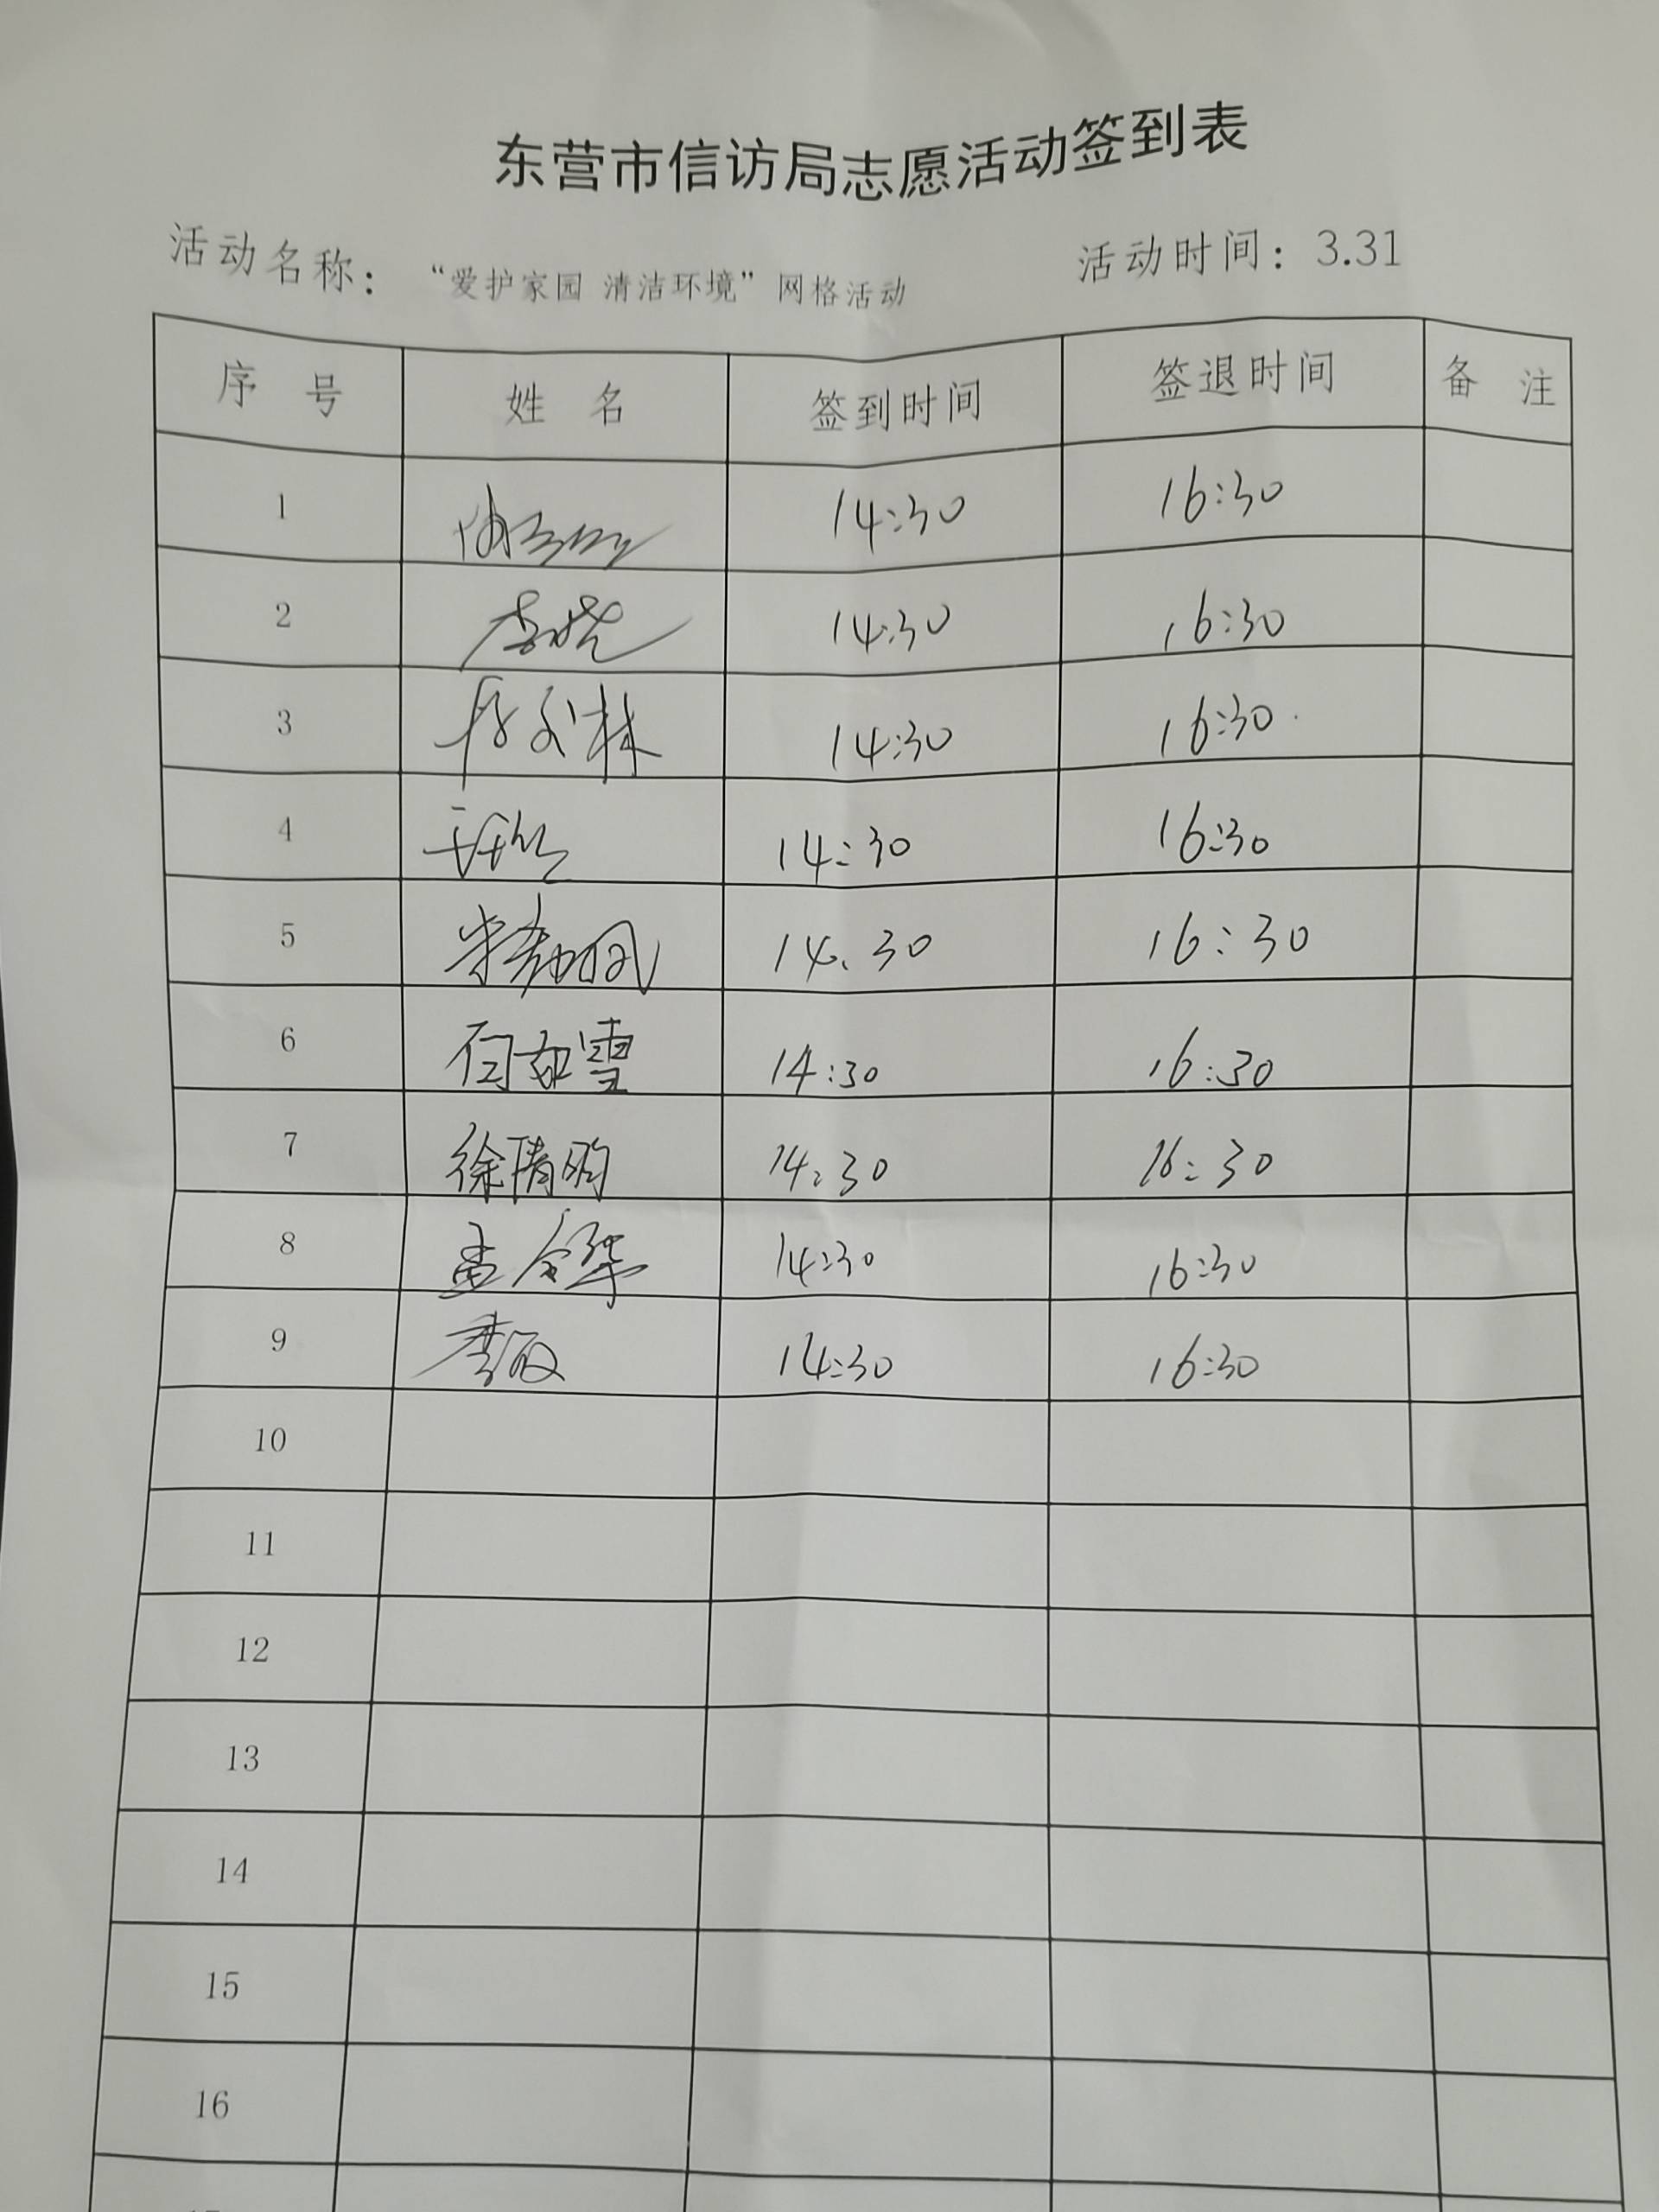 东营市信访局志愿活动签到表
活动名称： “爱护家园 清洁环境”网格活动 活动时间：3.31
序 号 姓 名 签到时间 签退时间 备 注
1 14:30 16:30
2 李晓 14:30 16:30
3 14:30 16:30
4 14:30 16:30
5 14:30 16:30
6 闫如雪 14:30 16:30
7 徐倩昀 14:30 16:30
8 孟令华 14:30 16:30
9 李敏 14:30 16:30
10
11
12
13
14
15
16